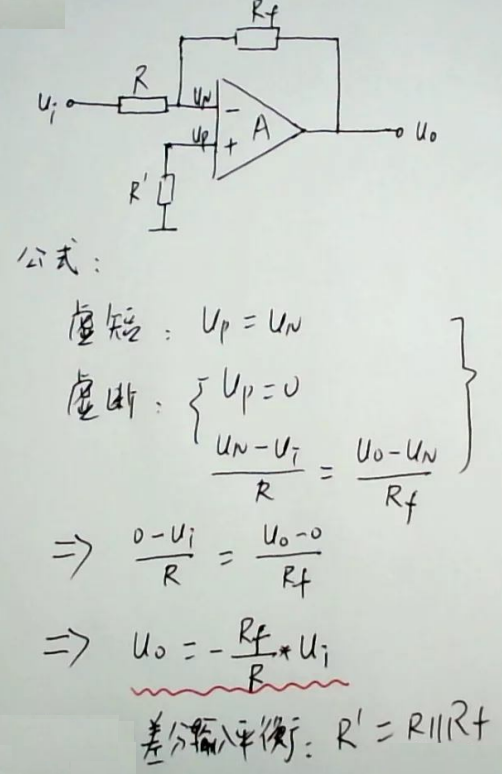 Rf
R
Ui
UN
UP
A
Uo
R'
公式：
虚短：Up = UN
虚断：{ Up = 0
(UN - Ui)/R = (Uo - UN)/Rf }
=> (0 - Ui)/R = (Uo - 0)/Rf
=> Uo = - Rf/R * Ui
差分输入平衡：R' = R || Rf